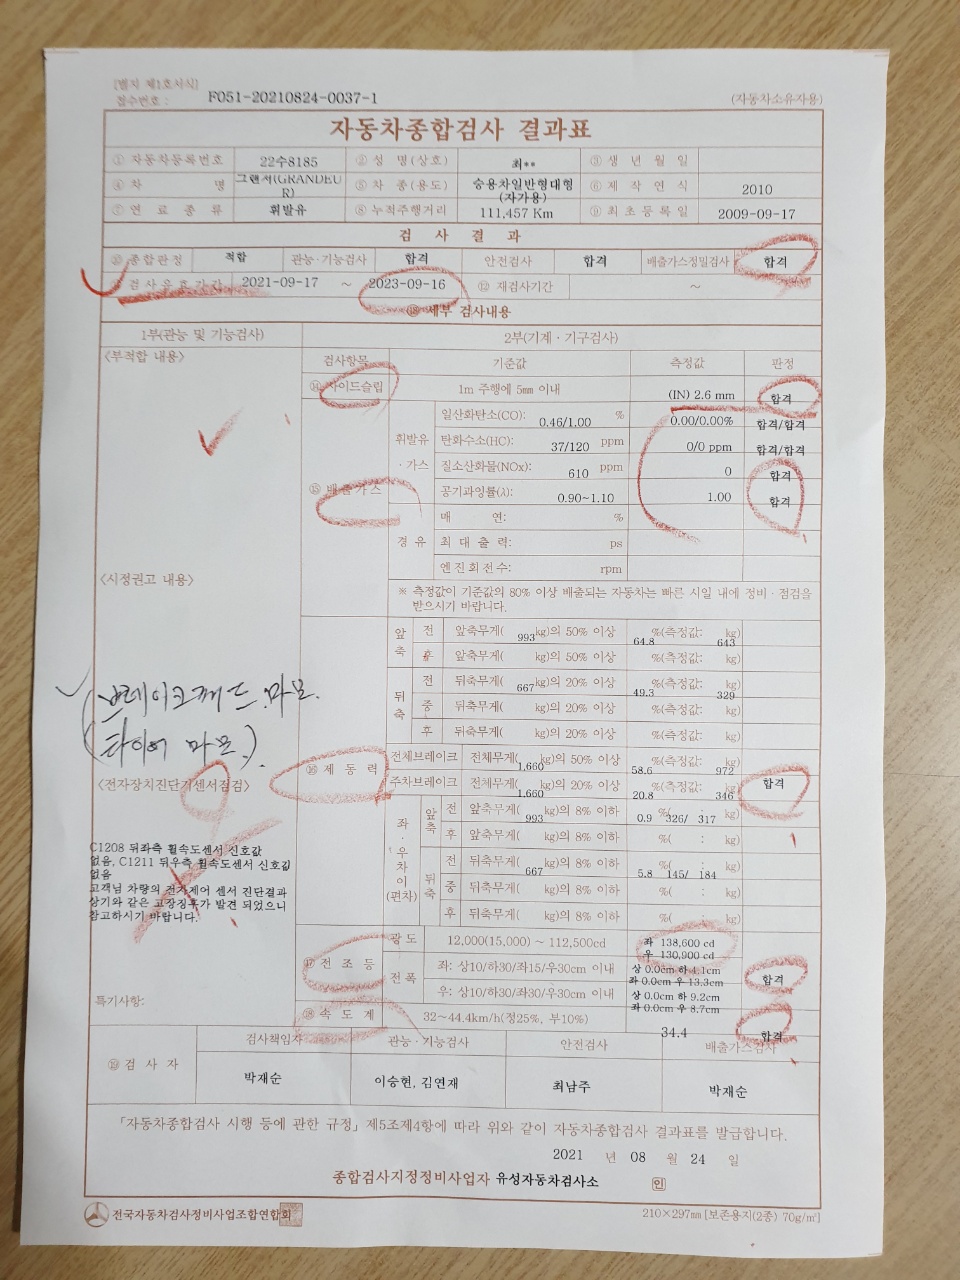 [별지 제1호서식]
접수번호 : F051-20210824-0037-1 (자동차소유자용)
자동차종합검사 결과표
① 자동차등록번호 22수8185 ② 성 명(상호) 최** ③ 생 년 월 일
④ 차 명 그랜저(GRANDEUR) ⑤ 차 종(용도) 승용차일반형대형(자가용) ⑥ 제 작 연 식 2010
⑦ 연 료 종 류 휘발유 ⑧ 누적주행거리 111,457 Km ⑨ 최 초 등 록 일 2009-09-17
검 사 결 과
⑩ 종합판정 적합 관능·기능검사 합격 안전검사 합격 배출가스정밀검사 합격
검사유효기간 2021-09-17 ~ 2023-09-16 ⑫ 재검사기간 ~
⑬ 세부 검사내용
1부(관능 및 기능검사) 2부(기계·기구검사)
<부적합 내용>
검사항목 기준값 측정값 판정
⑭ 사이드슬립 1m 주행에 5㎜ 이내 (IN) 2.6 mm 합격
⑮ 배출가스
휘발유·가스
일산화탄소(CO): 0.46/1.00 % 0.00/0.00% 합격/합격
탄화수소(HC): 37/120 ppm 0/0 ppm 합격/합격
질소산화물(NOx): 610 ppm 0 합격
공기과잉률(λ): 0.90~1.10 1.00 합격
경 유
매 연: %
최 대 출 력: ps
엔진회전수: rpm
※ 측정값이 기준값의 80% 이상 배출되는 자동차는 빠른 시일 내에 정비·점검을
받으시기 바랍니다.
<시정권고 내용>
브레이크패드 마모.
(타이어 마모.)
⑯ 제 동 력
앞축 전 앞축무게( 993 kg)의 50% 이상 64.8 %(측정값: 643 kg)
후 앞축무게( kg)의 50% 이상 %(측정값: kg)
뒤축 전 뒤축무게( 667 kg)의 20% 이상 49.3 %(측정값: 329 kg)
중 뒤축무게( kg)의 20% 이상 %(측정값: kg)
후 뒤축무게( kg)의 20% 이상 %(측정값: kg)
전체브레이크 전체무게( 1,660 kg)의 50% 이상 58.6 %(측정값: 972 kg)
주차브레이크 전체무게( 1,660 kg)의 20% 이상 20.8 %(측정값: 346 kg) 합격
좌·우 차이 (편차)
앞축 전 앞축무게( 993 kg)의 8% 이하 0.9 %( 326/ 317 kg)
후 앞축무게( kg)의 8% 이하 %( : kg)
뒤축 전 뒤축무게( 667 kg)의 8% 이하 5.8 %( 145/ 184 kg)
중 뒤축무게( kg)의 8% 이하 %( : kg)
후 뒤축무게( kg)의 8% 이하 %( : kg)
<전자장치진단기센서점검>
C1208 뒤좌측 휠속도센서 신호값
없음, C1211 뒤우측 휠속도센서 신호값
없음
고객님 차량의 전자제어 센서 진단결과
상기와 같은 고장징후가 발견 되었으니
참고하시기 바랍니다.
⑰ 전 조 등
광 도 12,000(15,000) ~ 112,500cd 좌 138,600 cd
우 130,900 cd
전폭 좌: 상10/하30/좌15/우30cm 이내 상 0.0cm 하 4.1cm
좌 0.0cm 우 13.3cm 합격
우: 상10/하30/좌30/우30cm 이내 상 0.0cm 하 9.2cm
좌 0.0cm 우 8.7cm
특기사항:
⑱ 속 도 계 32~44.4km/h(정25%, 부10%) 34.4 합격
⑲ 검 사 자 검사책임자 관능·기능검사 안전검사 배출가스검사
박재순 이승현, 김연재 최남주 박재순
「자동차종합검사 시행 등에 관한 규정」 제5조제4항에 따라 위와 같이 자동차종합검사 결과표를 발급합니다.
2021 년 08 월 24 일
종합검사지정정비사업자 유성자동차검사소 인
전국자동차검사정비사업조합연합회 210×297㎜ [보존용지(2종) 70g/㎡]